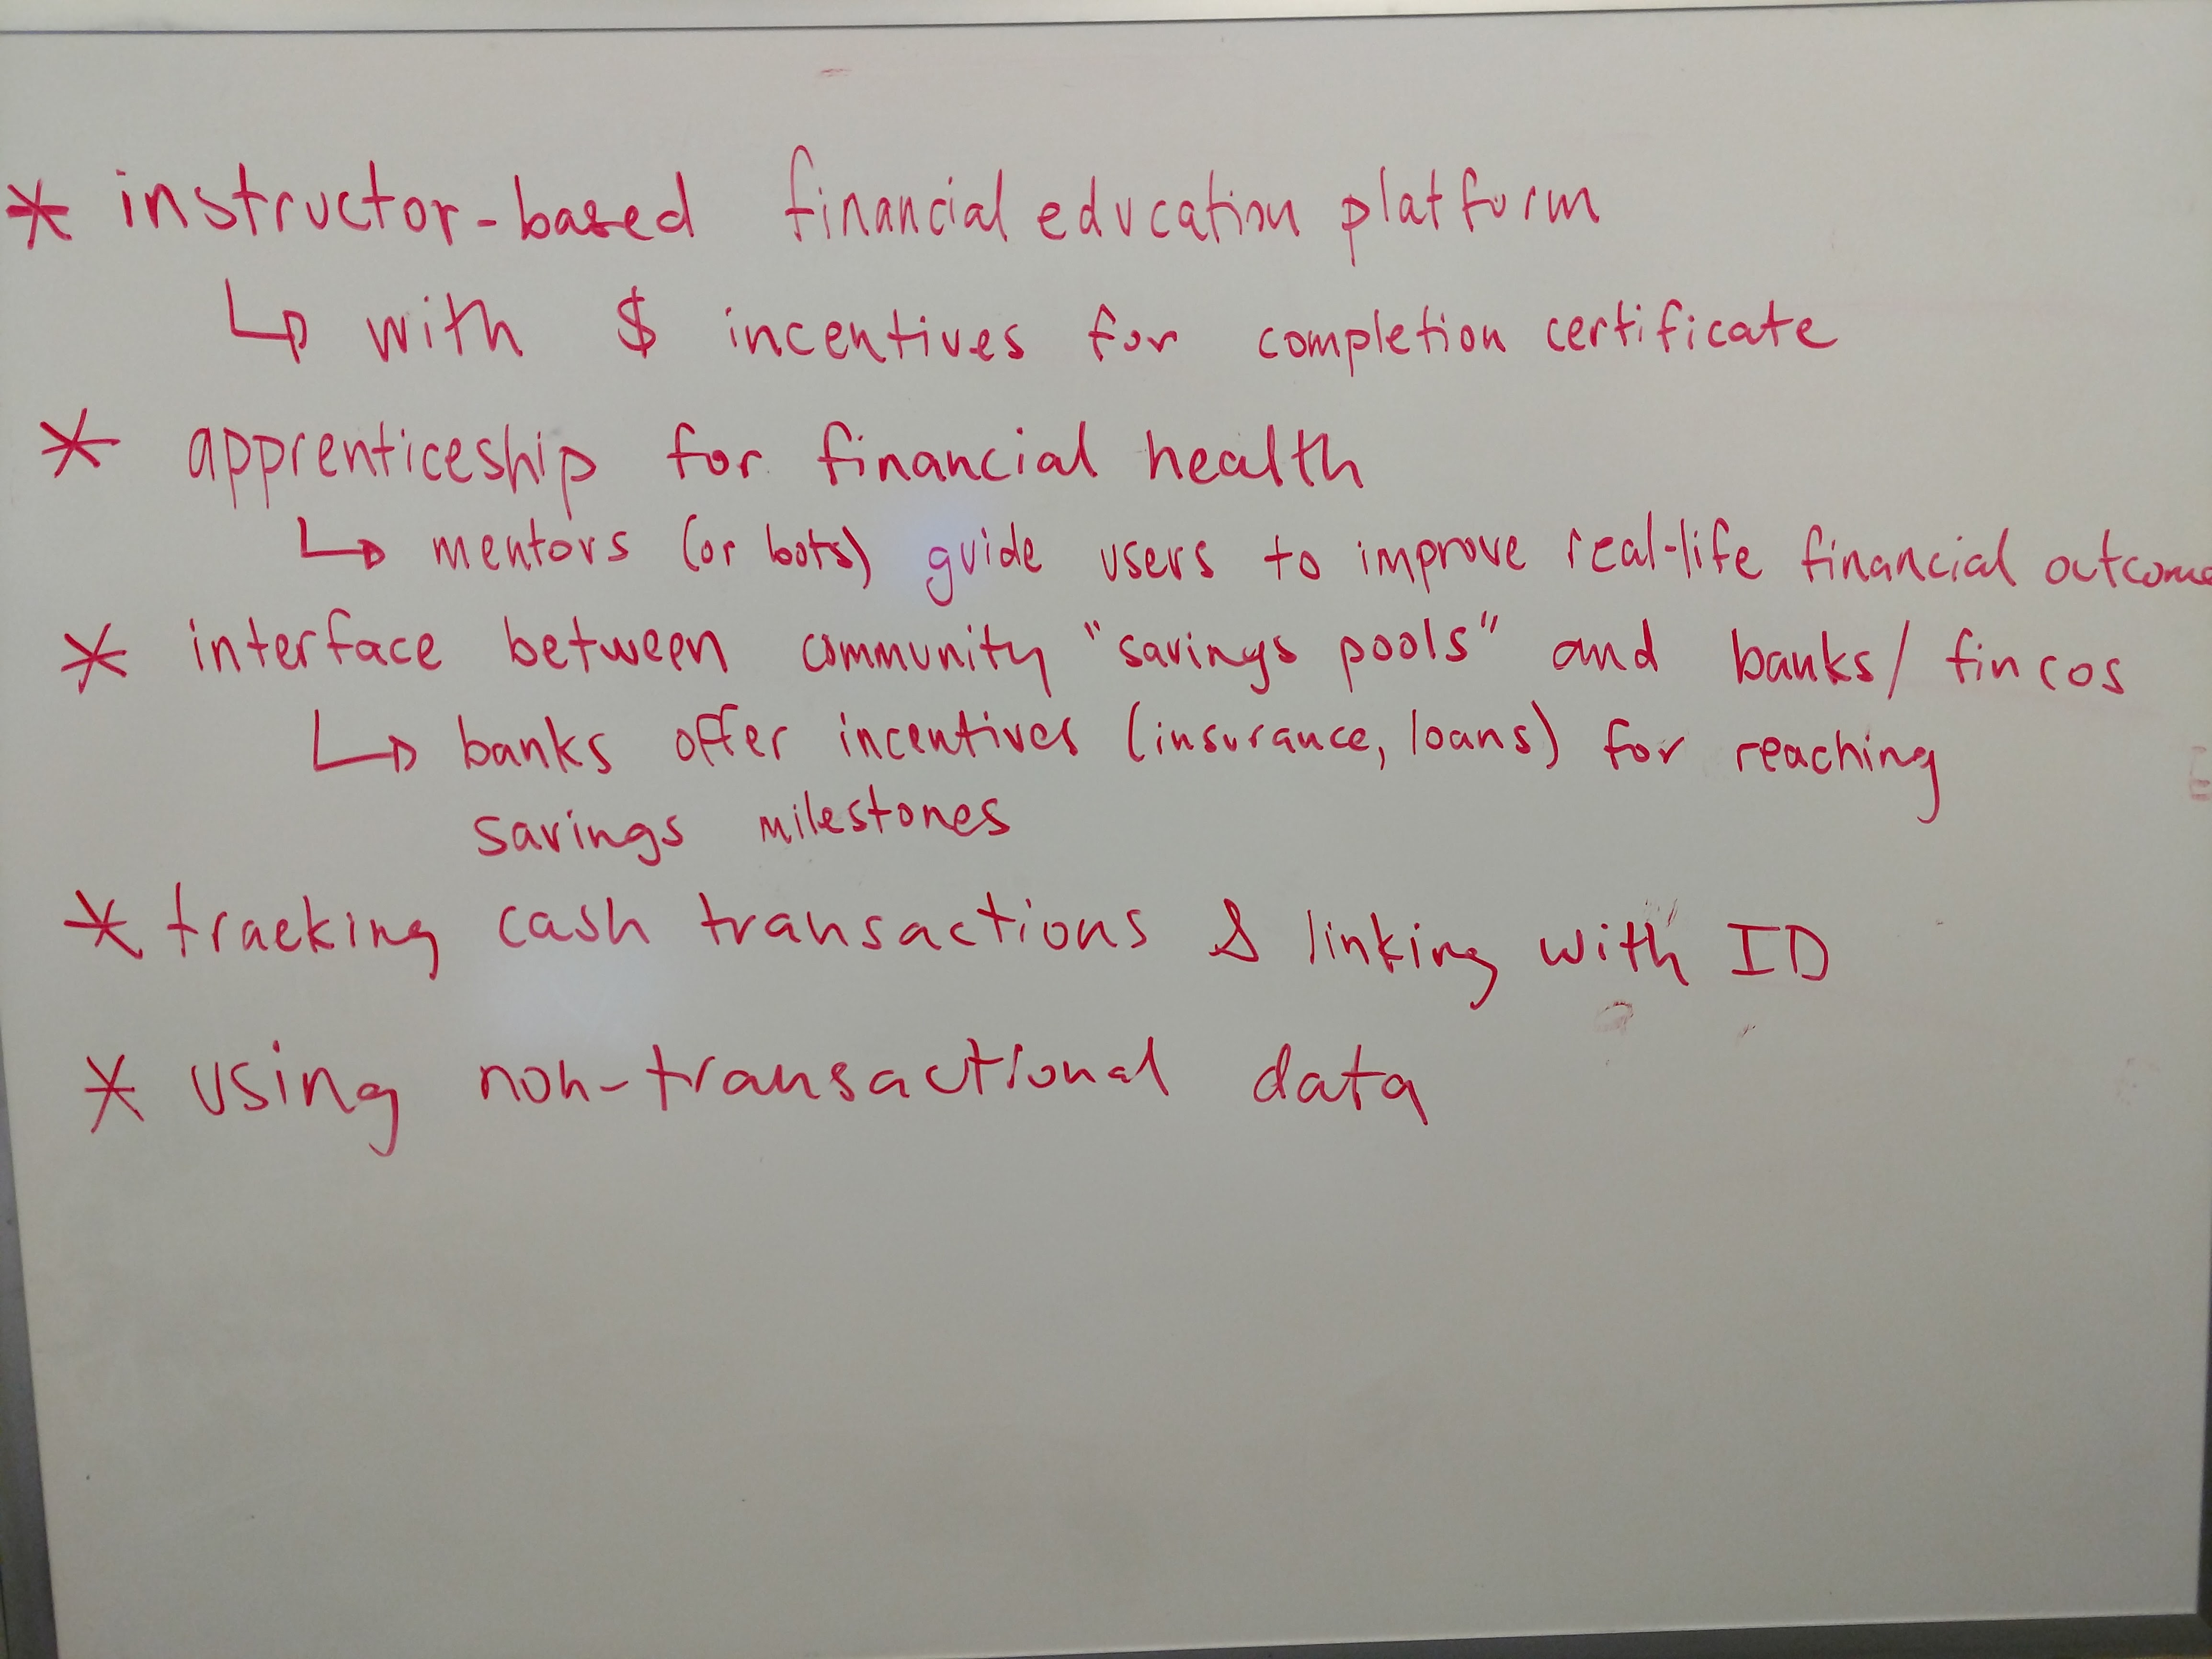 * instructor-based financial education platform
↳ with $ incentives for completion certificate
* apprenticeship for financial health
↳ mentors (or bots) guide users to improve real-life financial outcome
* interface between community "savings pools" and banks/ fincos
↳ banks offer incentives (insurance, loans) for reaching
savings milestones
* tracking cash transactions & linking with ID
* using non-transactional data